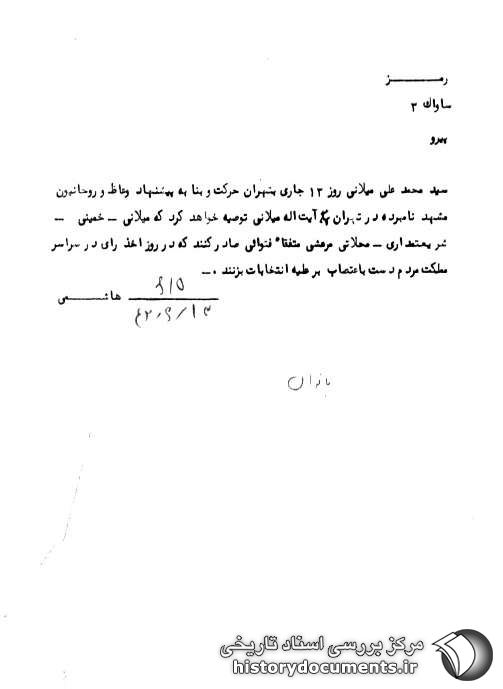 رمـــــز
ساواك ۲
پیرو
سید محمد علی میلانی روز ۱۳ جاری بتهران حرکت و بنا به پیشنهاد وعاظ و روحانیون
مشهد نامبرده در تهران به آیت اله میلانی توصیه خواهد کرد که میلانی – خمینی –
شریعتمداری – محلاتی مرعشی متفقاً فتوائی صادر کنند که در روز اخذ رای در سراسر
مملکت مردم دست باعتصاب بر علیه انتخابات بزنند . –
هاشمی
مرکز بررسی اسناد تاریخی
historydocuments.ir